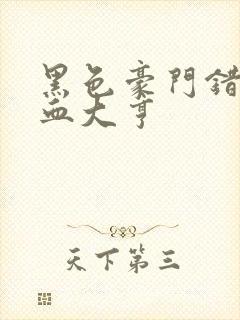 黑色豪門錯
血大亨
天下第三